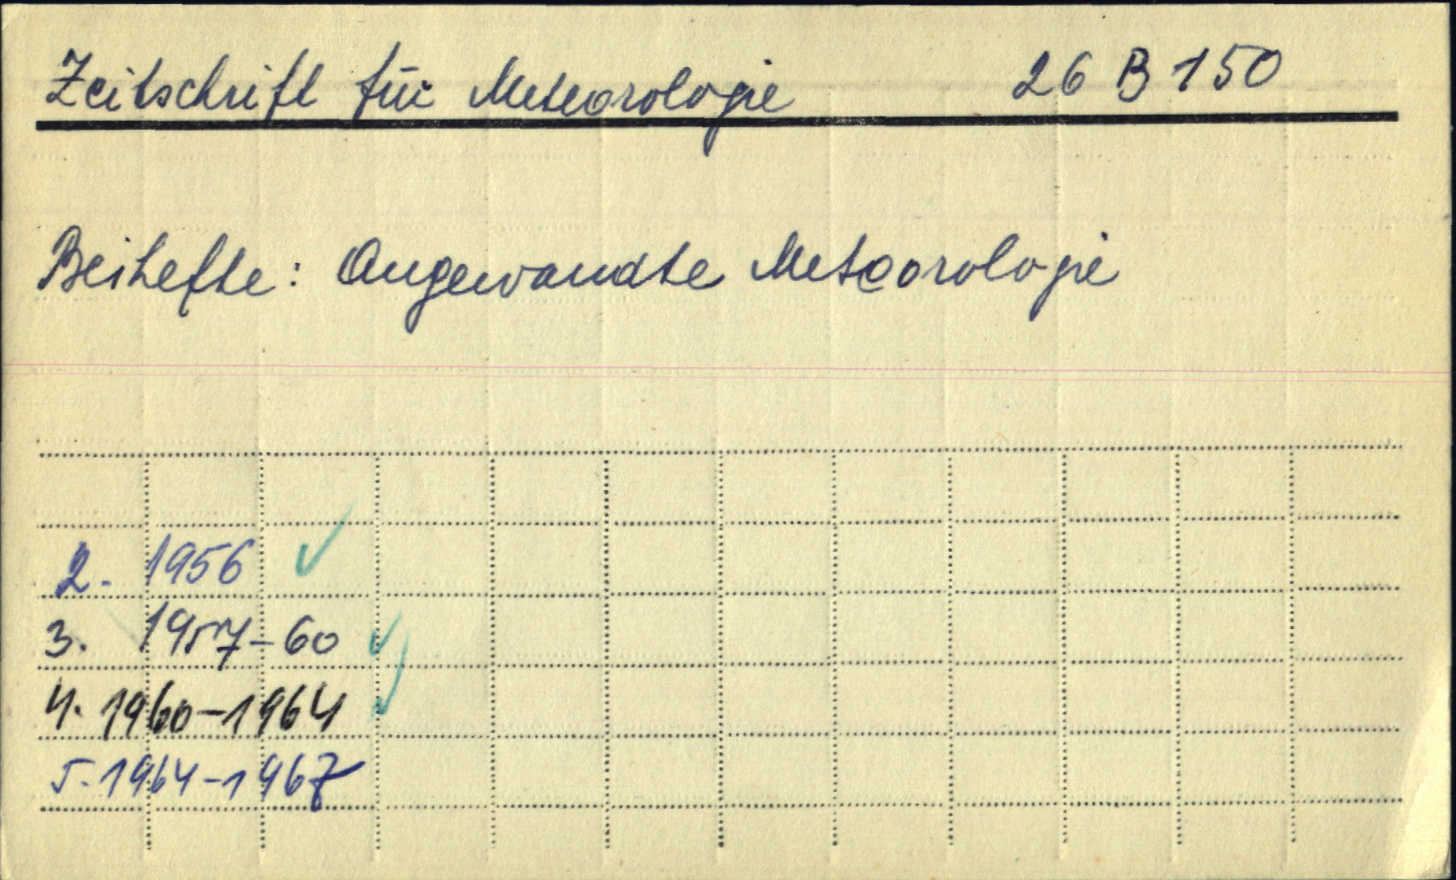 Zeitschrift für Meteorologie 26 B 150
Beihefte: Angewandte Meteorologie
2. 1956 ✓
3. 1957-60 ✓
4. 1960-1964 ✓
5. 1964-1967